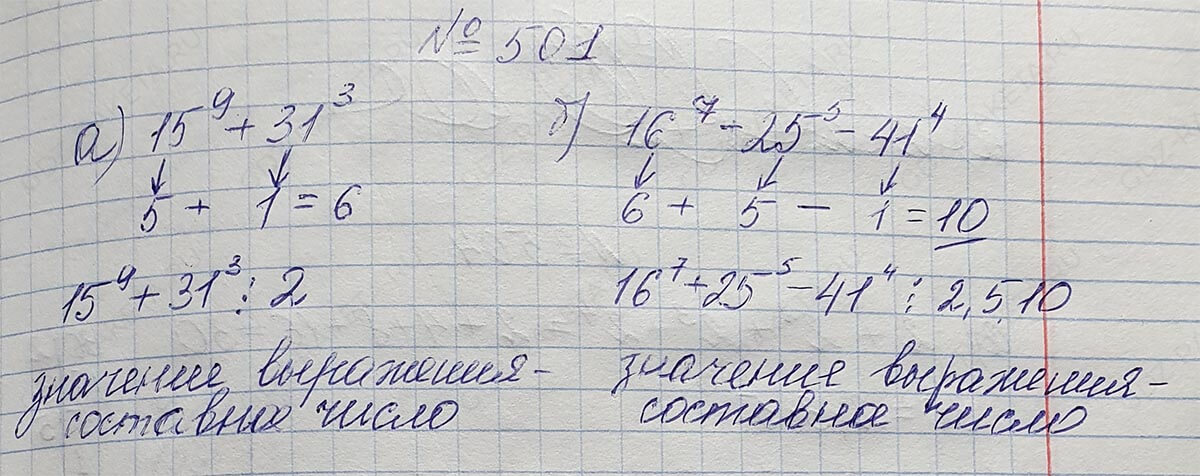 № 501
а) 15⁹ + 31³
5 + 1 = 6
15⁹ + 31³ ⋮ 2
значение выражения -
составное число
б) 16⁷ - 25⁵ - 41⁴
6 + 5 - 1 = 10
16⁷ + 25⁵ - 41⁴ ⋮ 2, 5, 10
значение выражения -
составное число